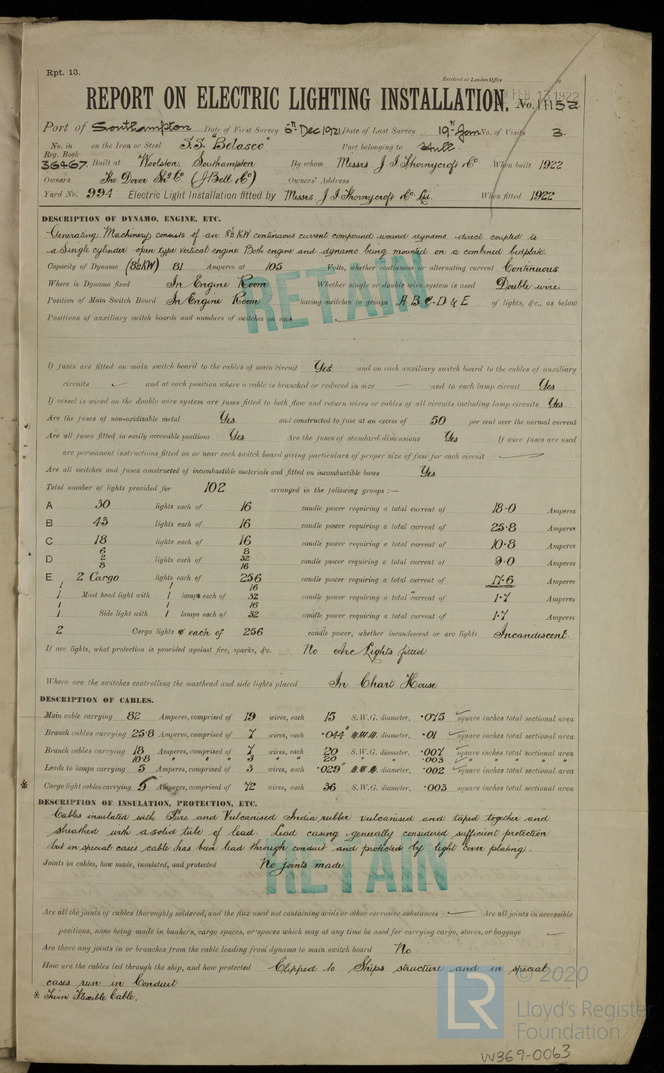 Rpt. 13.
Received at London Office
FEB. 13 1922
REPORT ON ELECTRIC LIGHTING INSTALLATION. No. 11152
Port of Southampton Date of First Survey 6th Dec 1921 Date of Last Survey 19th Jan No. of Visits 3.
No. in Reg. Book on the Iron or Steel S.S. "Belasco" Port belonging to Hull
36467. Built at Woolston, Southampton By whom Messrs. J I Thornycroft & Co. When built 1922
Owners The Dover SS Co (J Bell & Co) Owners' Address
Yard No. 994 Electric Light Installation fitted by Messrs J I Thornycroft & Co Ld. When fitted 1922
DESCRIPTION OF DYNAMO, ENGINE, ETC.
Generating Machinery consists of an 8½ KW continuous current compound wound dynamo direct coupled to
a single cylinder open type vertical engine Both engine and dynamo being mounted on a combined bedplate
Capacity of Dynamo (8½KW) 81 Amperes at 105 Volts, whether continuous or alternating current Continuous
Where is Dynamo fixed In Engine Room Whether single or double wire system is used Double wire
Position of Main Switch Board In Engine Room having switches to groups A B C D & E of lights, &c., as below
Positions of auxiliary switch boards and numbers of switches on each
RETAIN
If fuses are fitted on main switch board to the cables of main circuit Yes and on each auxiliary switch board to the cables of auxiliary
circuits and at each position where a cable is branched or reduced in size and to each lamp circuit Yes
If vessel is wired on the double wire system are fuses fitted to both flow and return wires or cables of all circuits including lamp circuits Yes.
Are the fuses of non-oxidizable metal Yes and constructed to fuse at an excess of 50 per cent over the normal current
Are all fuses fitted in easily accessible positions Yes. Are the fuses of standard dimensions Yes If wire fuses are used
are permanent instructions fitted on or near each switch board giving particulars of proper size of fuse for each circuit
Are all switches and fuses constructed of incombustible materials and fitted on incombustible bases Yes
Total number of lights provided for 102 arranged in the following groups :—
A 30 lights each of 16 candle power requiring a total current of 18.0 Amperes
B 43 lights each of 16 candle power requiring a total current of 25.8 Amperes
C 18 lights each of 16 candle power requiring a total current of 10.8 Amperes
6 8
D 2 lights each of 32 candle power requiring a total current of 9.0 Amperes
8 16
E 2 Cargo lights each of 256 candle power requiring a total current of 17.6 Amperes
1 16
1 Mast head light with 1 lamps each of 32 candle power requiring a total current of 1.7 Amperes
1 16
1 Side light with 1 lamps each of 32 candle power requiring a total current of 1.7 Amperes
2 Cargo lights of each of 256 candle power, whether incandescent or arc lights Incandescent.
If arc lights, what protection is provided against fire, sparks, &c. No Arc Lights fitted
Where are the switches controlling the masthead and side lights placed In Chart House
DESCRIPTION OF CABLES.
Main cable carrying 82 Amperes, comprised of 19 wires, each 15 S.W.G. diameter, .075 square inches total sectional area
Branch cables carrying 25.8 Amperes, comprised of 7 wires, each .044" S.W.G. diameter, .01 square inches total sectional area
Branch cables carrying 18 Amperes, comprised of 7 wires, each 20 S.W.G. diameter, .007 square inches total sectional area
10.8 " " 3 " " 20 " " .003 " " " "
Leads to lamps carrying 5 Amperes, comprised of 3 wires, each .029" S.W.G. diameter, .002 square inches total sectional area
* Cargo light cables carrying 5 Amperes, comprised of 72 wires, each 36 S.W.G. diameter, .003 square inches total sectional area
DESCRIPTION OF INSULATION, PROTECTION, ETC.
Cables insulated with Pure and Vulcanised India rubber vulcanised and taped together and
sheathed with a solid tube of lead. Lead casing generally considered sufficient protection
but in special cases cable has been lead through conduit and protected by light cover plating.
Joints in cables, how made, insulated, and protected No joints made.
RETAIN
Are all the joints of cables thoroughly soldered, and the flux used not containing acids or other corrosive substances Are all joints in accessible
positions, none being made in bunkers, cargo spaces, or spaces which may at any time be used for carrying cargo, stores, or baggage
Are there any joints in or branches from the cable leading from dynamo to main switch board No.
How are the cables led through the ship, and how protected Clipped to Ships structure and in special
cases run in Conduit
* Twin Flexible Cable.
© 2020
LR Lloyd's Register
Foundation
W369-0063